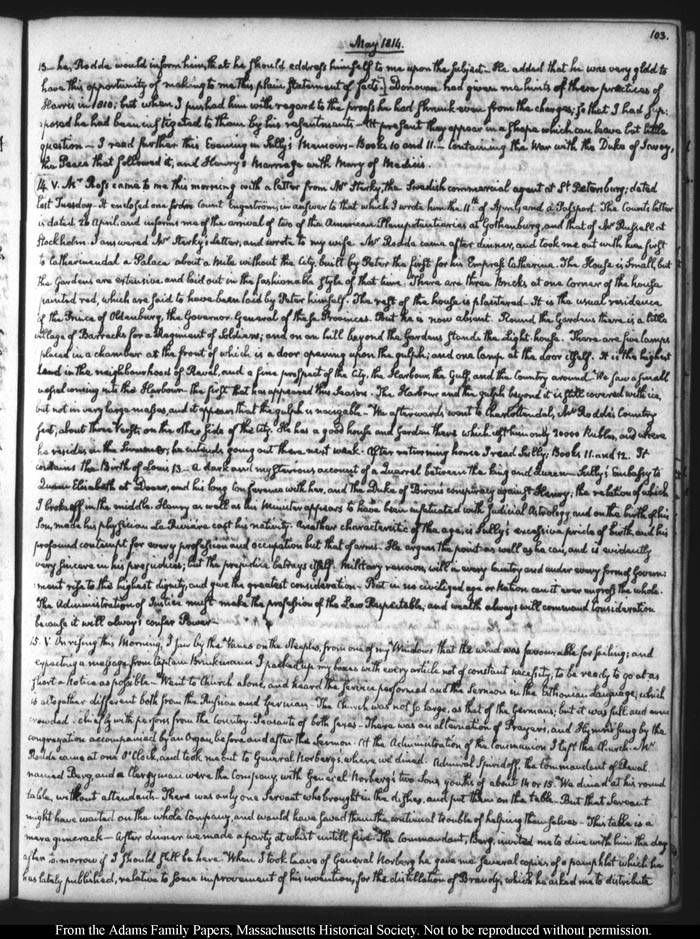 103.
May 1814.
13 — he, Rodde would inform him, that he should address himself to me upon the subject — He added that he was very glad to
have this opportunity of making to me this plain statement of facts.] Donovan had given me hints of these practices of
Harris in 1810; but when I pushed him with regard to the proofs he had shrunk even from the charges; so that I had sup-
posed he had been instigated to them by his resentments — At present they appear in a shape which can leave but little
question — I read further this Evening in Sully's Memoirs — Books 10 and 11 — Containing the War with the Duke of Savoy,
the Peace that followed it, and Henry's Marriage with Mary of Medicis.
14. V. Mr Ross came to me this morning with a letter from Mr Sterky, the Swedish commercial agent at St Petersburg; dated
last Tuesday. It enclosed one from Count Engeström, in answer to that which I wrote him the 11th of April, and a Passport. The Counts letter
is dated 28 April, and informs me of the arrival of two of the American Plenipotentiaries at Gothenburg, and that of Mr Russell at
Stockholm. I answered Mr Sterky's letter, and wrote to my wife. Mr Rodde came after dinner, and took me out with him first
to Catherinendal a Palace about a Mile without the City, built by Peter the first for his Empress Catherine. The House is small, but
the Gardens are extensive, and laid out in the fashionable style of that time. There are three Bricks at one corner of the house
painted red, which are said to have been laid by Peter himself. The rest of the house is plaistered. It is the usual residence
of the Prince of Oldenburg, the Governor General of these Provinces. But he is now absent. Round the Gardens there is a little
village of Barracks for a Regiment of Soldiers; and on an hill beyond the Gardens stands the Light-house. There are five lamps
placed in a chamber at the front of which is a door opening upon the gulph; and one lamp at the door itself. It is the highest
Land in the neighbourhood of Reval, and a fine prospect of the City, the Harbour, the Gulf, and the Country around. We saw a small
vessel coming into the Harbour — the first that has appeared this Season. The Harbour and the gulph beyond it is still covered with ice,
but not in very large masses, and it appears that the gulph is navigable — We afterwards went to Charlottendal, Mr Rodde's Country
seat, about three Versts, on the other side of the City. He has a good house and Garden there which cost him only 20000 Rubles, and where
he resides in the Summer; he intends going out there next week. After returning home I read Sully, Books 11. and 12. It
contains the Birth of Louis 13 — A dark and mysterious account of a Quarrel between the King and Queen — Sully's Embassy to
Queen Elizabeth at Dover, and his long conference with her, and the Duke of Biron's conspiracy against Henry; the relation of which
I broke off in the middle. Henry as well as his Minister appears to have been infatuated with Judicial Astrology and on the birth of his
Son, made his physician La Riviere cast his nativity. Another characteristic of the age, is Sully's excessive pride of birth, and his
profound contempt for every profession and occupation but that of arms. He argues the point as well as he can, and is evidently
very sincere in his prejudices; but the prejudice betrays itself. Military renown, will in every country and under every form of Govern-
ment rise to the highest dignity, and give the greatest consideration — But in no civilized age or Nation can it ever engross the whole.
The Administration of Justice must make the profession of the Law Respectable, and wealth always will command consideration
because it will always confer Power.
15. V: On rising this Morning, I saw by the Vanes on the Steeples, from one of my Windows that the wind was favourable for sailing; and
expecting a message from Captain Brinkmann I packed up my boxes with every article not of constant necessity, to be ready to go at as
short a Notice as possible — Went to Church alone, and heard the service performed and the Sermon in the Esthonian Language; which
is altogether different both from the Russian and German — The Church was not so large, as that of the Germans; but it was full and even
crowded — chiefly with persons from the Country. Peasants of both sexes — There was an alternation of Prayers, and Hymns sung by the
congregation accompanied by an Organ, before and after the Sermon. At the Administration of the Communion I left the Church — Mr
Rodde came at one O'Clock, and took me out to General Norberg's, where we dined. Admiral Spiridoff, the Commandant of Reval
named Berg, and a Clergyman were the Company, with General Norberg's two Sons, youths of about 14 or 15. We dined at his round
table, without attendants. There was only one Servant who brought in the dishes, and put them on the table. But that Servant
might have waited on the whole Company, and would have saved them the continual trouble of helping themselves — This table is a
mere gimcrack — After dinner we made a party at whist untill five. The Commandant, Berg, invited me to dine with him the day
after to-morrow if I should still be here. When I took leave of General Norberg he gave me several copies of a pamphlet which he
has lately published, relative to some improvement of his invention, for the distillation of Brandy, which he asked me to distribute
From the Adams Family Papers, Massachusetts Historical Society. Not to be reproduced without permission.